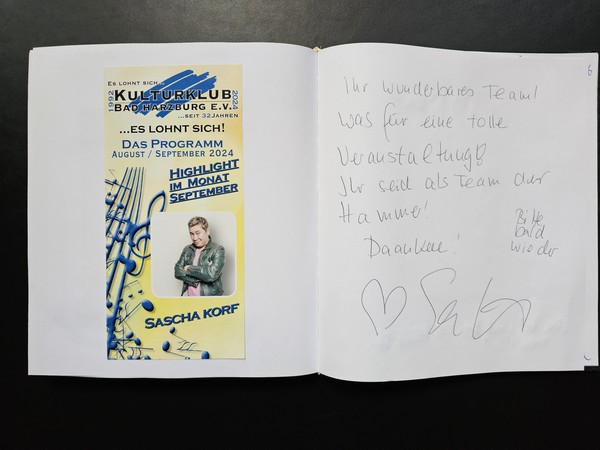 ES LOHNT SICH...
1992 KULTURKLUB 2024
BAD HARZBURG E.V.
...SEIT 32 JAHREN
...ES LOHNT SICH!
DAS PROGRAMM
AUGUST / SEPTEMBER 2024
HIGHLIGHT
IM MONAT
SEPTEMBER
SASCHA KORF
Ihr wunderbares Team!
Was für eine tolle
Veranstaltung!!
Ihr seid als Team der
Hammer!
Daankee!
Bitte
bald
wieder